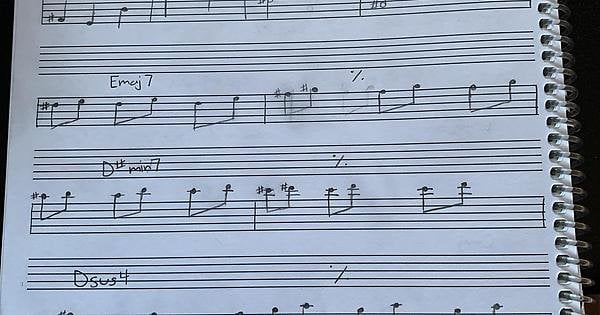 Emaj7 ٪
D#min7 ٪
Dsus4 ٪